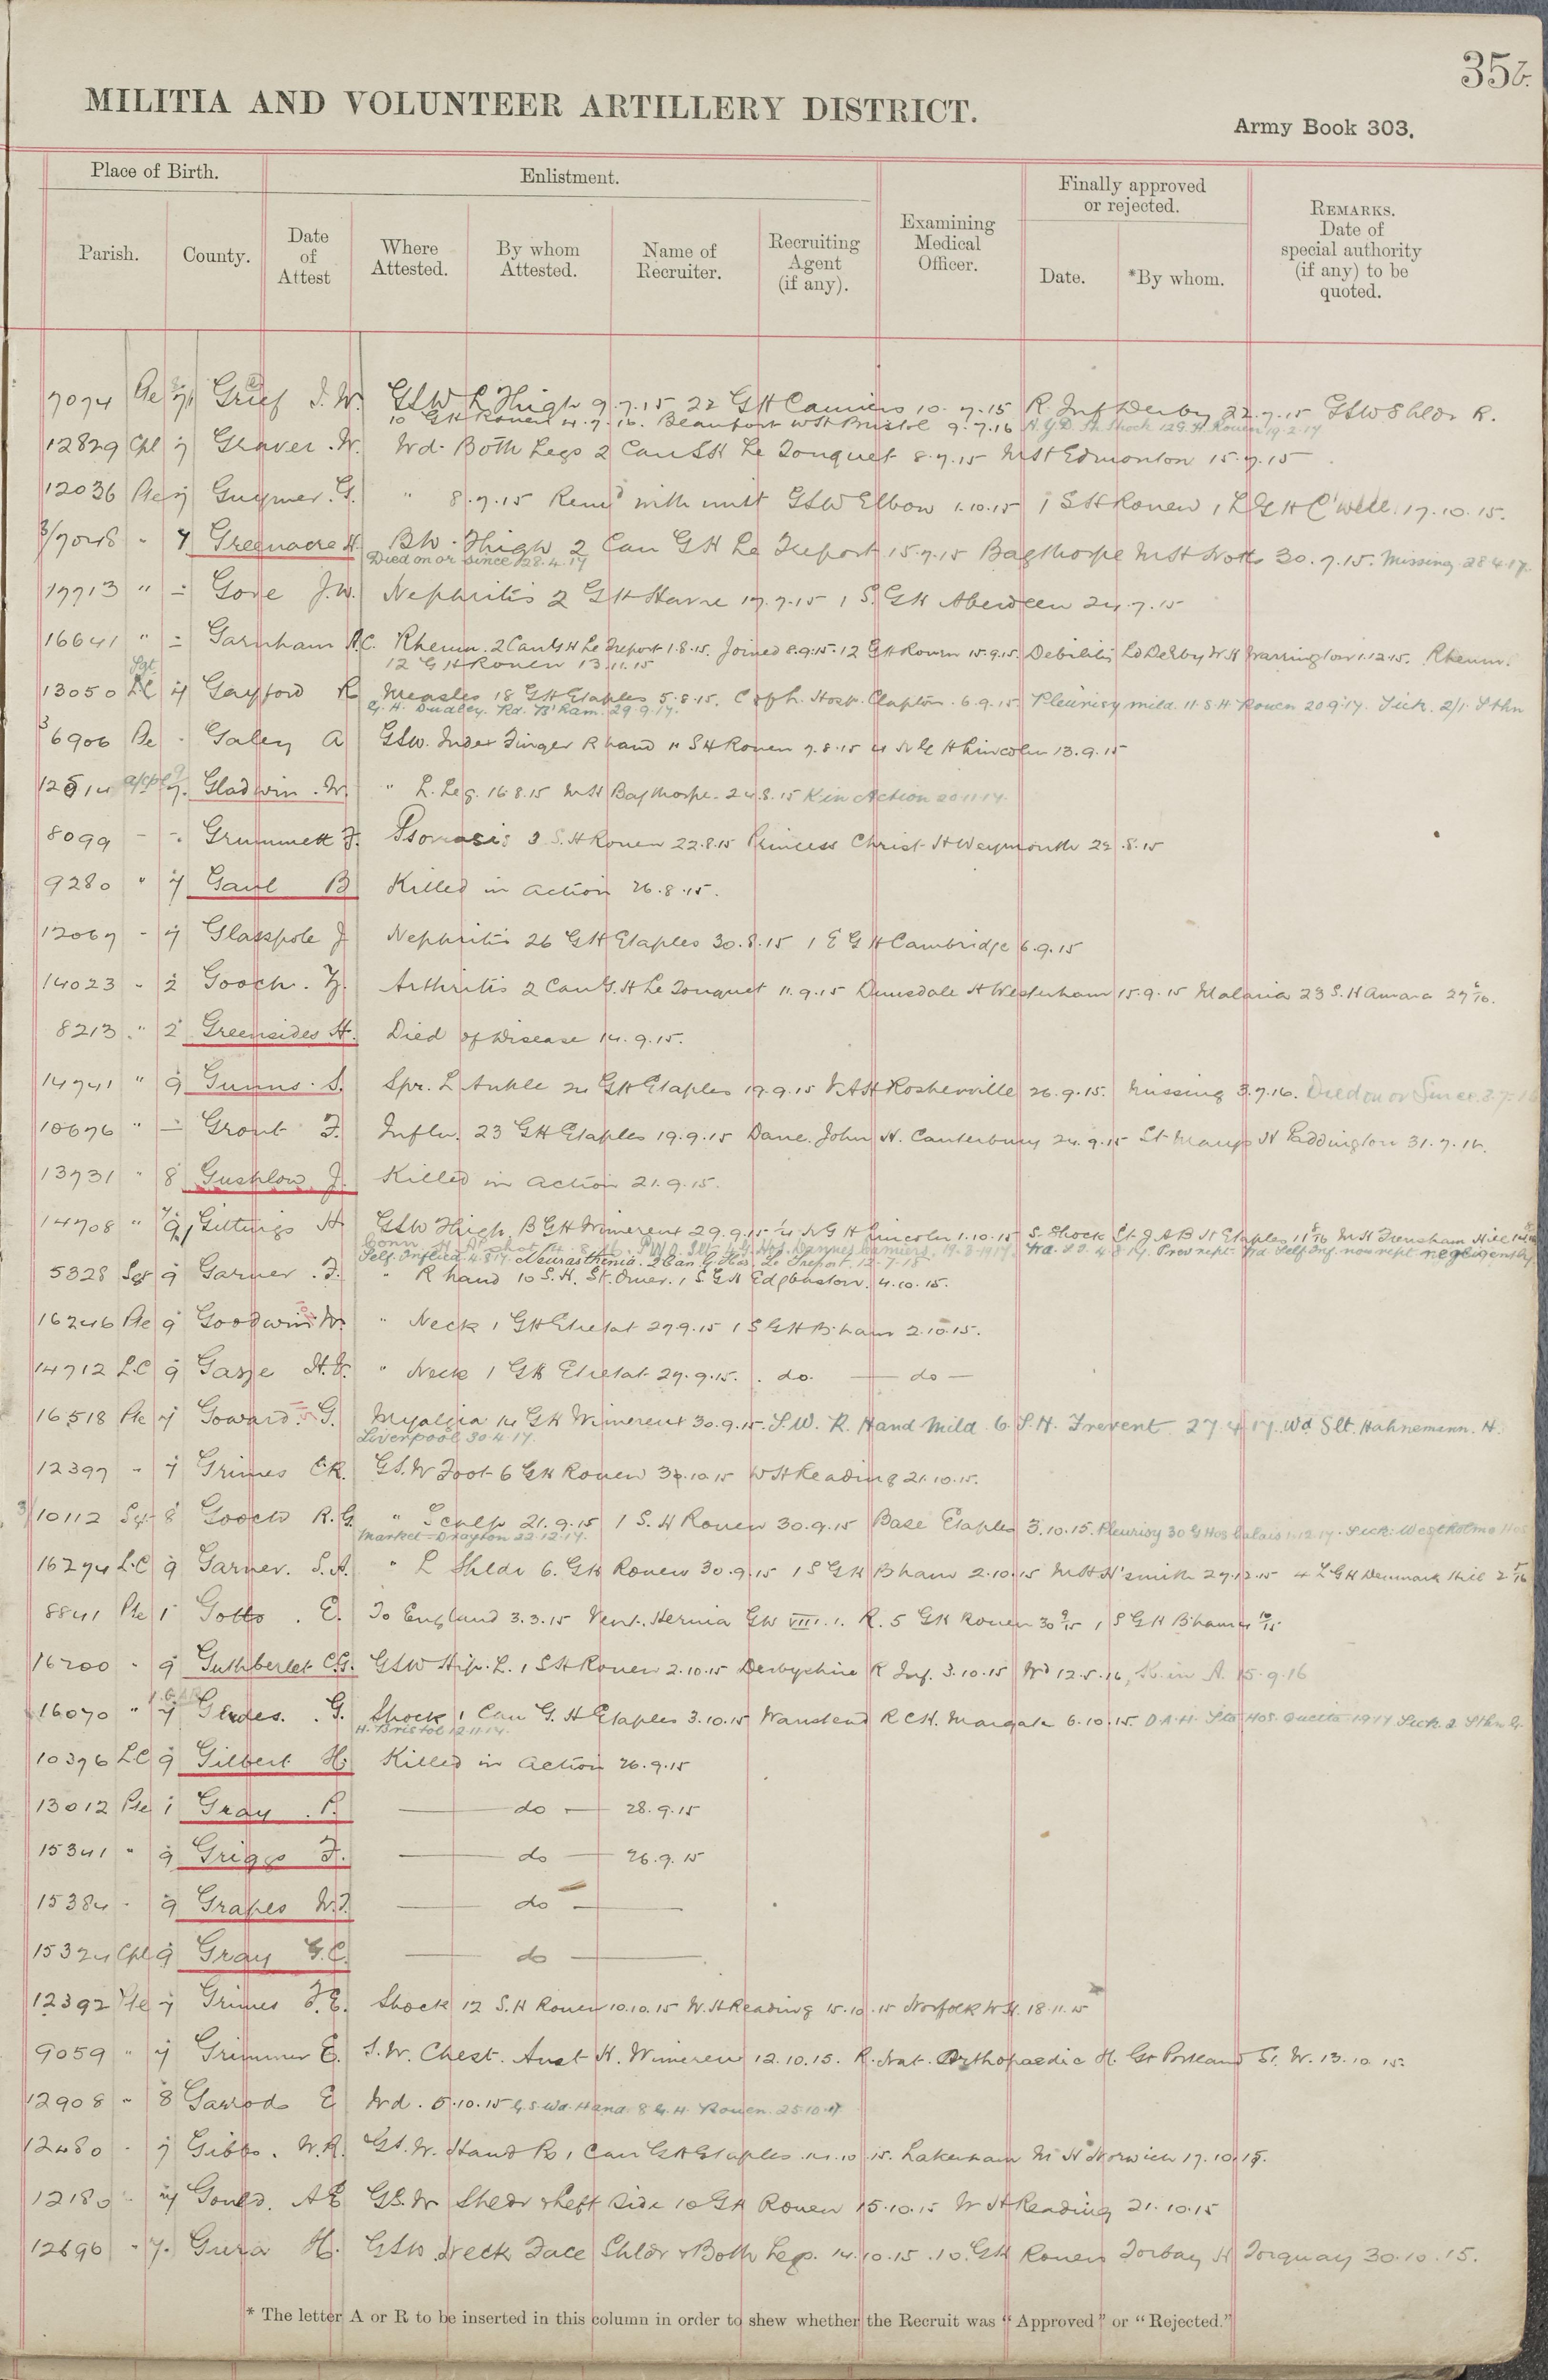 35b.
MILITIA AND VOLUNTEER ARTILLERY DISTRICT.
Army Book 303.
Place of Birth.
Enlistment.
Finally approved
or rejected.
Parish.
County.
Date
of
Attest
Where
Attested.
By whom
Attested.
Name of
Recruiter.
Recruiting
Agent
(if any).
Examining
Medical
Officer.
Date.
*By whom.
REMARKS.
Date of
special authority
(if any) to be
quoted.
7074 Pte 7 Grief J.W. GSW L Thigh 9.7.15 22 GH Camiers 10.7.15 R Inf Derby 22.7.15 GSW Shldr R.
10 GH Rouen 4.7.16. Beaufort WH Bristol 9.7.16 N.Y.D. Sh. Shock 12 G.H. Rouen 19.2.17
12829 Cpl 7 Graver .W. Wd. Both Legs 2 Can SH Le Touquet 8.7.15 MH Edmonton 15.7.15
12036 Pte 7 Guymer .G. " 8.7.15 Remd with unit GSW Elbow 1.10.15 1 SH Rouen 1 LGH C'well 17.10.15.
3/7048 - 7 Greenacre H. BW. Thigh 2 Can GH Le Treport 15.7.15 Bagthorpe MH Notts 30.7.15. Missing 28.4.17.
Died on or since 28.4.17
17713 " - Gore J.W. Nephritis 2 GH Havre 17.7.15 1 S.GH Aberdeen 24.7.15
16641 " - Garnham A.C. Rheum. 2 Can GH Le Treport 1.8.15. Joined 8.9.15. 12 GH Rouen 15.9.15. Debility Ld Derby W.H Warrington 1.12.15. Rheum.
12 GH Rouen 13.11.15
Sgt
13050 LC 7 Gayford R Measles 18 GH Etaples 5.8.15. C of L. Hosp. Clapton. 6.9.15. Pleurisy mild. 11.S.H. Rouen 20.9.17. Sick. 2/1. Sthn
G.H. Dudley. Rd. B'ham. 29.9.17.
3 6906 Pte - Galey A GSW. Index Finger R hand 11 SH Rouen 7.8.15 4 NGH Lincoln 13.9.15
12514 a/cpl 7. Gladwin .W. " L. Leg. 16.8.15 MH Bagthorpe. 24.8.15 K in Action 20.11.17.
8099 - - Grummett F. Psoriasis 3 S.H Rouen 22.8.15 Princess Christ. H Weymouth 22.8.15
9280 " 7 Gaul B Killed in action 26.8.15.
12067 - 7 Glasspole J Nephritis 26 GH Etaples 30.8.15 1 E GH Cambridge 6.9.15
14023 - 2 Gooch. Arthritis 2 Can G.H Le Touquet 11.9.15 Dunsdale H Westerham 15.9.15 Malaria 23 S.H Amara
8213 . " 2 Greensides H. Died of Disease 14.9.15.
14741 " 9 Gunns. S. Spr. L Ankle 24 GH Etaples 19.9.15 VAH Rosherville 26.9.15. Missing 3.7.16. Died on or Since. 3.7.16
10676 " - Grout F. Influ. 23 GH Etaples 19.9.15 Dane John H. Canterbury 24.9.15 St Marys H Paddington 31.7.16.
13731 " 8 Gushlow J. Killed in action 21.9.15.
14708 " 9 Gittings H GSW Thigh B GH Wimereux 29.9.15 4 NGH Lincoln 1.10.15 S. Shock St. J.A.B H Etaples MH Frensham Hill
Self. Inflicd. 4.8.17. Neurasthenia. 2 Can. G. Hos. Le Treport. 12.7.18
5328 Sgt 9 Garner .F. " R hand 10 S.H. St. Omer. 1 S G H Edgbaston. 4.10.15.
16246 Pte 9 Goodwin W. " Neck 1 GH Etretat 27.9.15 1 S GH B'ham 2.10.15.
14712 L.C 9 Gaze H.V. " Neck 1 GH Etretat 27.9.15. . do. — do —
16518 Pte 7 Goward. G. Myalgia 14 GH Wimereux 30.9.15. S.W. R. Hand Mild 6 S.H. Frevent. 27.4.17. Wd Slt. Hahnemann. H.
Liverpool 30.4.17.
12397 - 7 Grimes E.R. GS.W Foot 6 GH Rouen 30.10.15 WH Reading 21.10.15.
3/10112 Sgt 8 Gooch R.G. " Scalp 21.9.15 1 S.H Rouen 30.9.15 Base Etaples 3.10.15. Pleurisy 30 G Hos Calais 1.12.17. Sick. Westholme Hos
Market Drayton 22.12.17.
16274 L.C 9 Garner. S.A. " L Shldr 6. GH Rouen 30.9.15 1 S GH B'ham 2.10.15 MH H'smith 27.12.15 4 LGH Denmark Hill
8841 Pte 1 Gotts . E. To England 3.3.15 Vent. Hernia GW VIII.1. R. 5 GH Rouen 1 S GH B'ham
16200 - 9 Guthberlet C.G. GSW Hip. L. 1 SH Rouen 2.10.15 Derbyshire R Inf. 3.10.15 Wd 12.5.16, K. in A. 15.9.16
16070 " 7 .G. Shock 1 Can G.H Etaples 3.10.15 Wanstead RCH. Margate 6.10.15. D.A.H.
H. Bristol 12.11.17.
10376 LC 9 Gilbert H. Killed in action 26.9.15
13012 Pte 1 Gray .P. — do — 28.9.15
15341 " 9 Griggs F. — do — 26.9.15
15384 - 9 Grapes W.J. — do —
15324 Cpl 9 Gray G.C. — do —
12392 Pte 7 Grimes F.E. Shock 12 S.H Rouen 10.10.15 W.H Reading 15.10.15 Norfolk WH. 18.11.15
9059 " 7 Grimmer E. S.W. Chest. Aust H. Wimereux 12.10.15. R. Nat. Orthopaedic H. Gt Portland St. W. 13.10.15.
12908 - 8 Garrods E Wd. 5.10.15 G.S.Wd. Hand. 8 G.H. Rouen. 25.10.17
12480 - 7 Gibbs. W.R. GS.W. Hand R. 1 Can GH Etaples. 14.10.15. Lakenham M H Norwich 17.10.15.
12180 - 7 Gould. A E GS.W Shldr & Left Side 10 GH Rouen 15.10.15 WH Reading 21.10.15
12696 - 7. H. GSW Neck Face Shldr & Both Legs. 14.10.15. 10. GH Rouen Torbay H Torquay 30.10.15.
* The letter A or R to be inserted in this column in order to shew whether the Recruit was "Approved" or "Rejected."